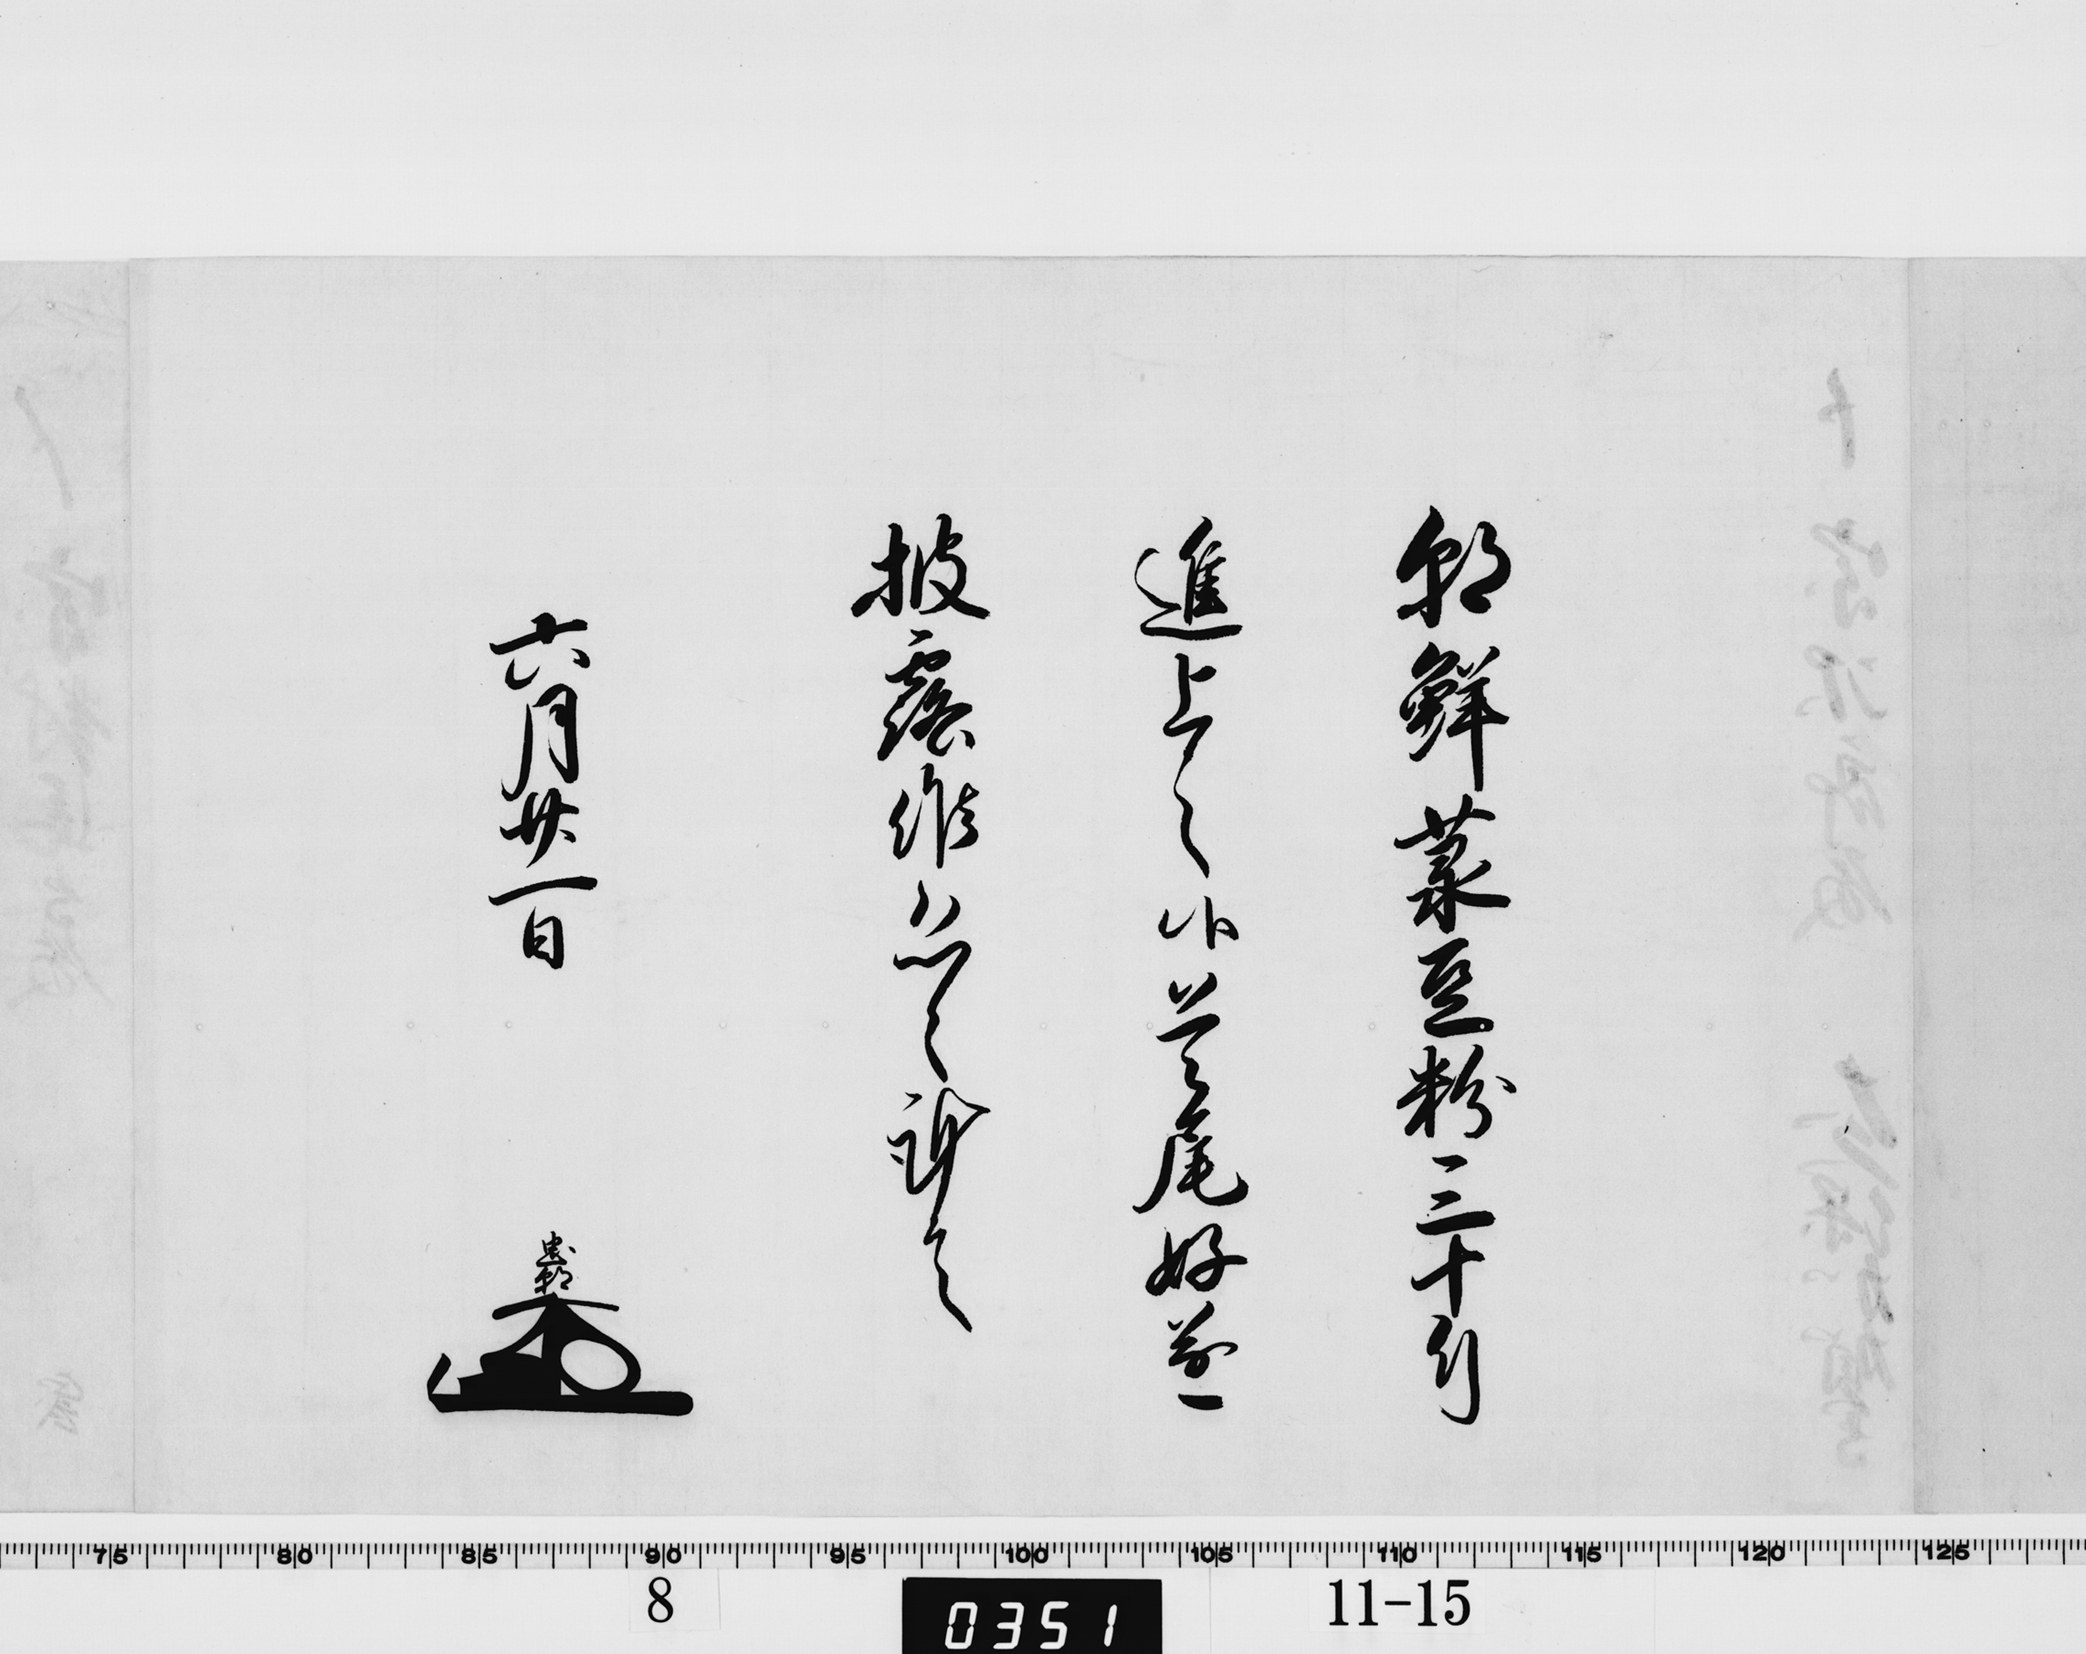 朝鮮菉豆粉三十斤
進上之以首尾好遂
披露候恐々謹言
六月廿一日
忠朝
75 80 85 90 95 100 105 110 115 120 125
8 0351 11-15